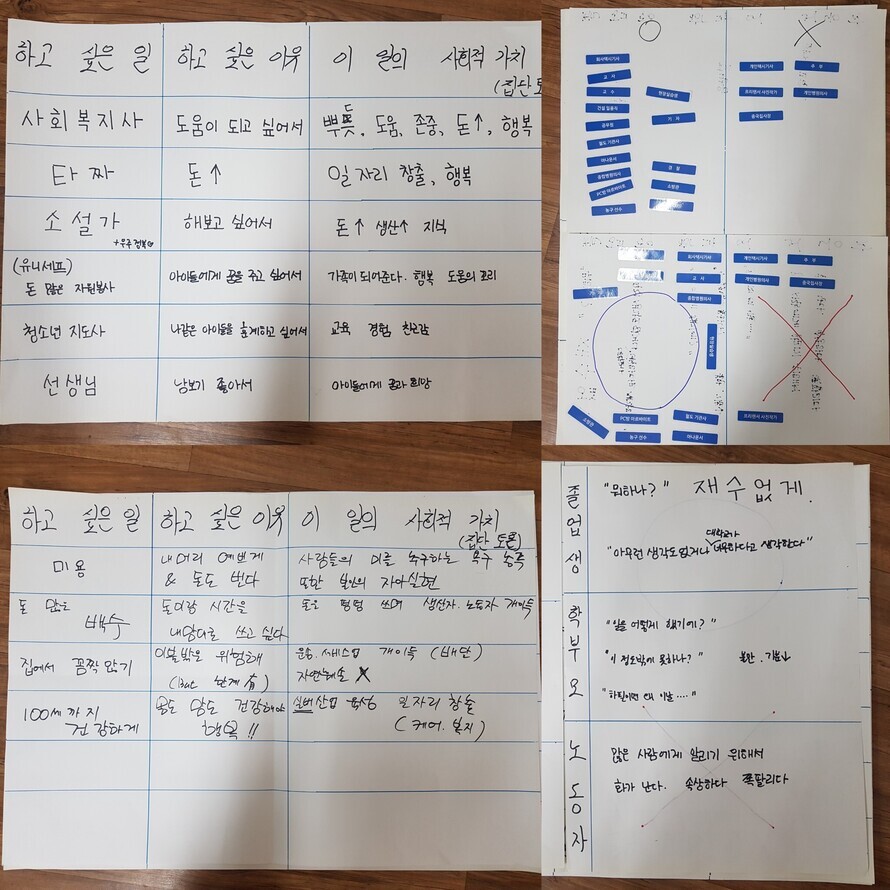 하고 싶은 일
하고 싶은 이유
이 일의 사회적 가치
(집단 토
사회복지사
도움이 되고 싶어서
뿌듯. 도움, 존중, 돈↑, 행복
타짜
돈↑
일자리 창출, 행복
소설가
+우주정복
해보고 싶어서
돈↑ 생산↑ 지식
(유니세프)
돈 많은 자원봉사
아이들에게 꿈을 주고 싶어서
가족이 되어준다. 행복 도움의
청소년 지도사
나같은 아이들을 훈계하고 싶어서
교육 경험 친근감
선생님
남보기 좋아서
아이들에게 꿈과 희망
○
×
회사택시기사
교사
교수
건설 일용직
공무원
철도 기관사
아나운서
종합병원의사
PC방 아르바이트
농구 선수
현장실습생
기자
경찰
소방관
개인택시기사
주부
프리랜서 사진작가
개인병원의사
중국집사장
회사택시기사
교사
종합병원의사
소방관
PC방 아르바이트
철도 기관사
농구 선수
아나운서
개인택시기사
주부
개인병원의사
중국집사장
프리랜서 사진작가
하고 싶은 일
하고 싶은 이유
이 일의 사회적 가치
(집단 토론)
미용
내 머리 예쁘게
& 돈도 번다
사람들의 미를 추구하는 욕구 충족
또한 본인의 자아실현
돈 많은
백수
돈이랑 시간을
내맘대로 쓰고 싶다
돈을 펑펑 쓰며 생산자.노동자 개이득
집에서 꼼짝 않기
이불밖은 위험해
운송.서비스업 개이득 (배달)
자연훼손 X
100세까지
건강하게
몸도 맘도 건강해야
행복!!
실버산업 육성 일자리 창출
(케어.복지)
졸업생
"뭐하나?" 재수없게.
대학교가
"아무런 생각도 없거나 비슷하다고 생각한다"
학부모
"일을 어떻게 했기에?"
"이 정도밖에 못하나?" 불만. 기분↓
"하필이면 왜 이날 ...."
노동자
많은 사람에게 알리기 위해서
화가 난다. 속상하다 쪽팔리다